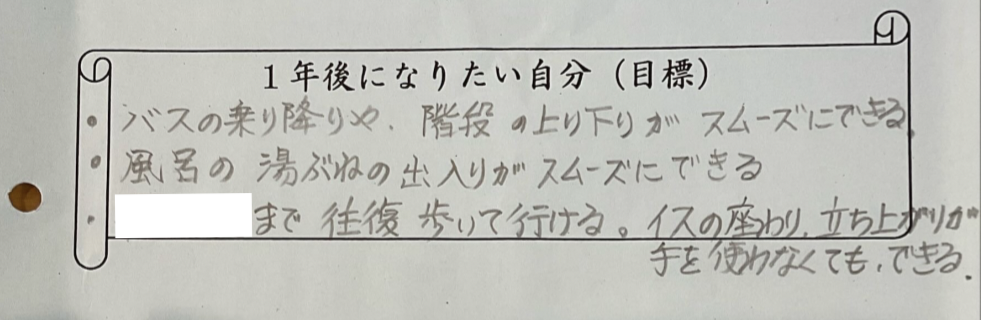 1年後になりたい自分（目標）
・バスの乗り降りや、階段の上り下りがスムーズにできる。
・風呂の湯ぶねの出入りがスムーズにできる
・まで往復歩いて行ける。イスの座わり、立ち上がりが
手を使わなくても、できる.